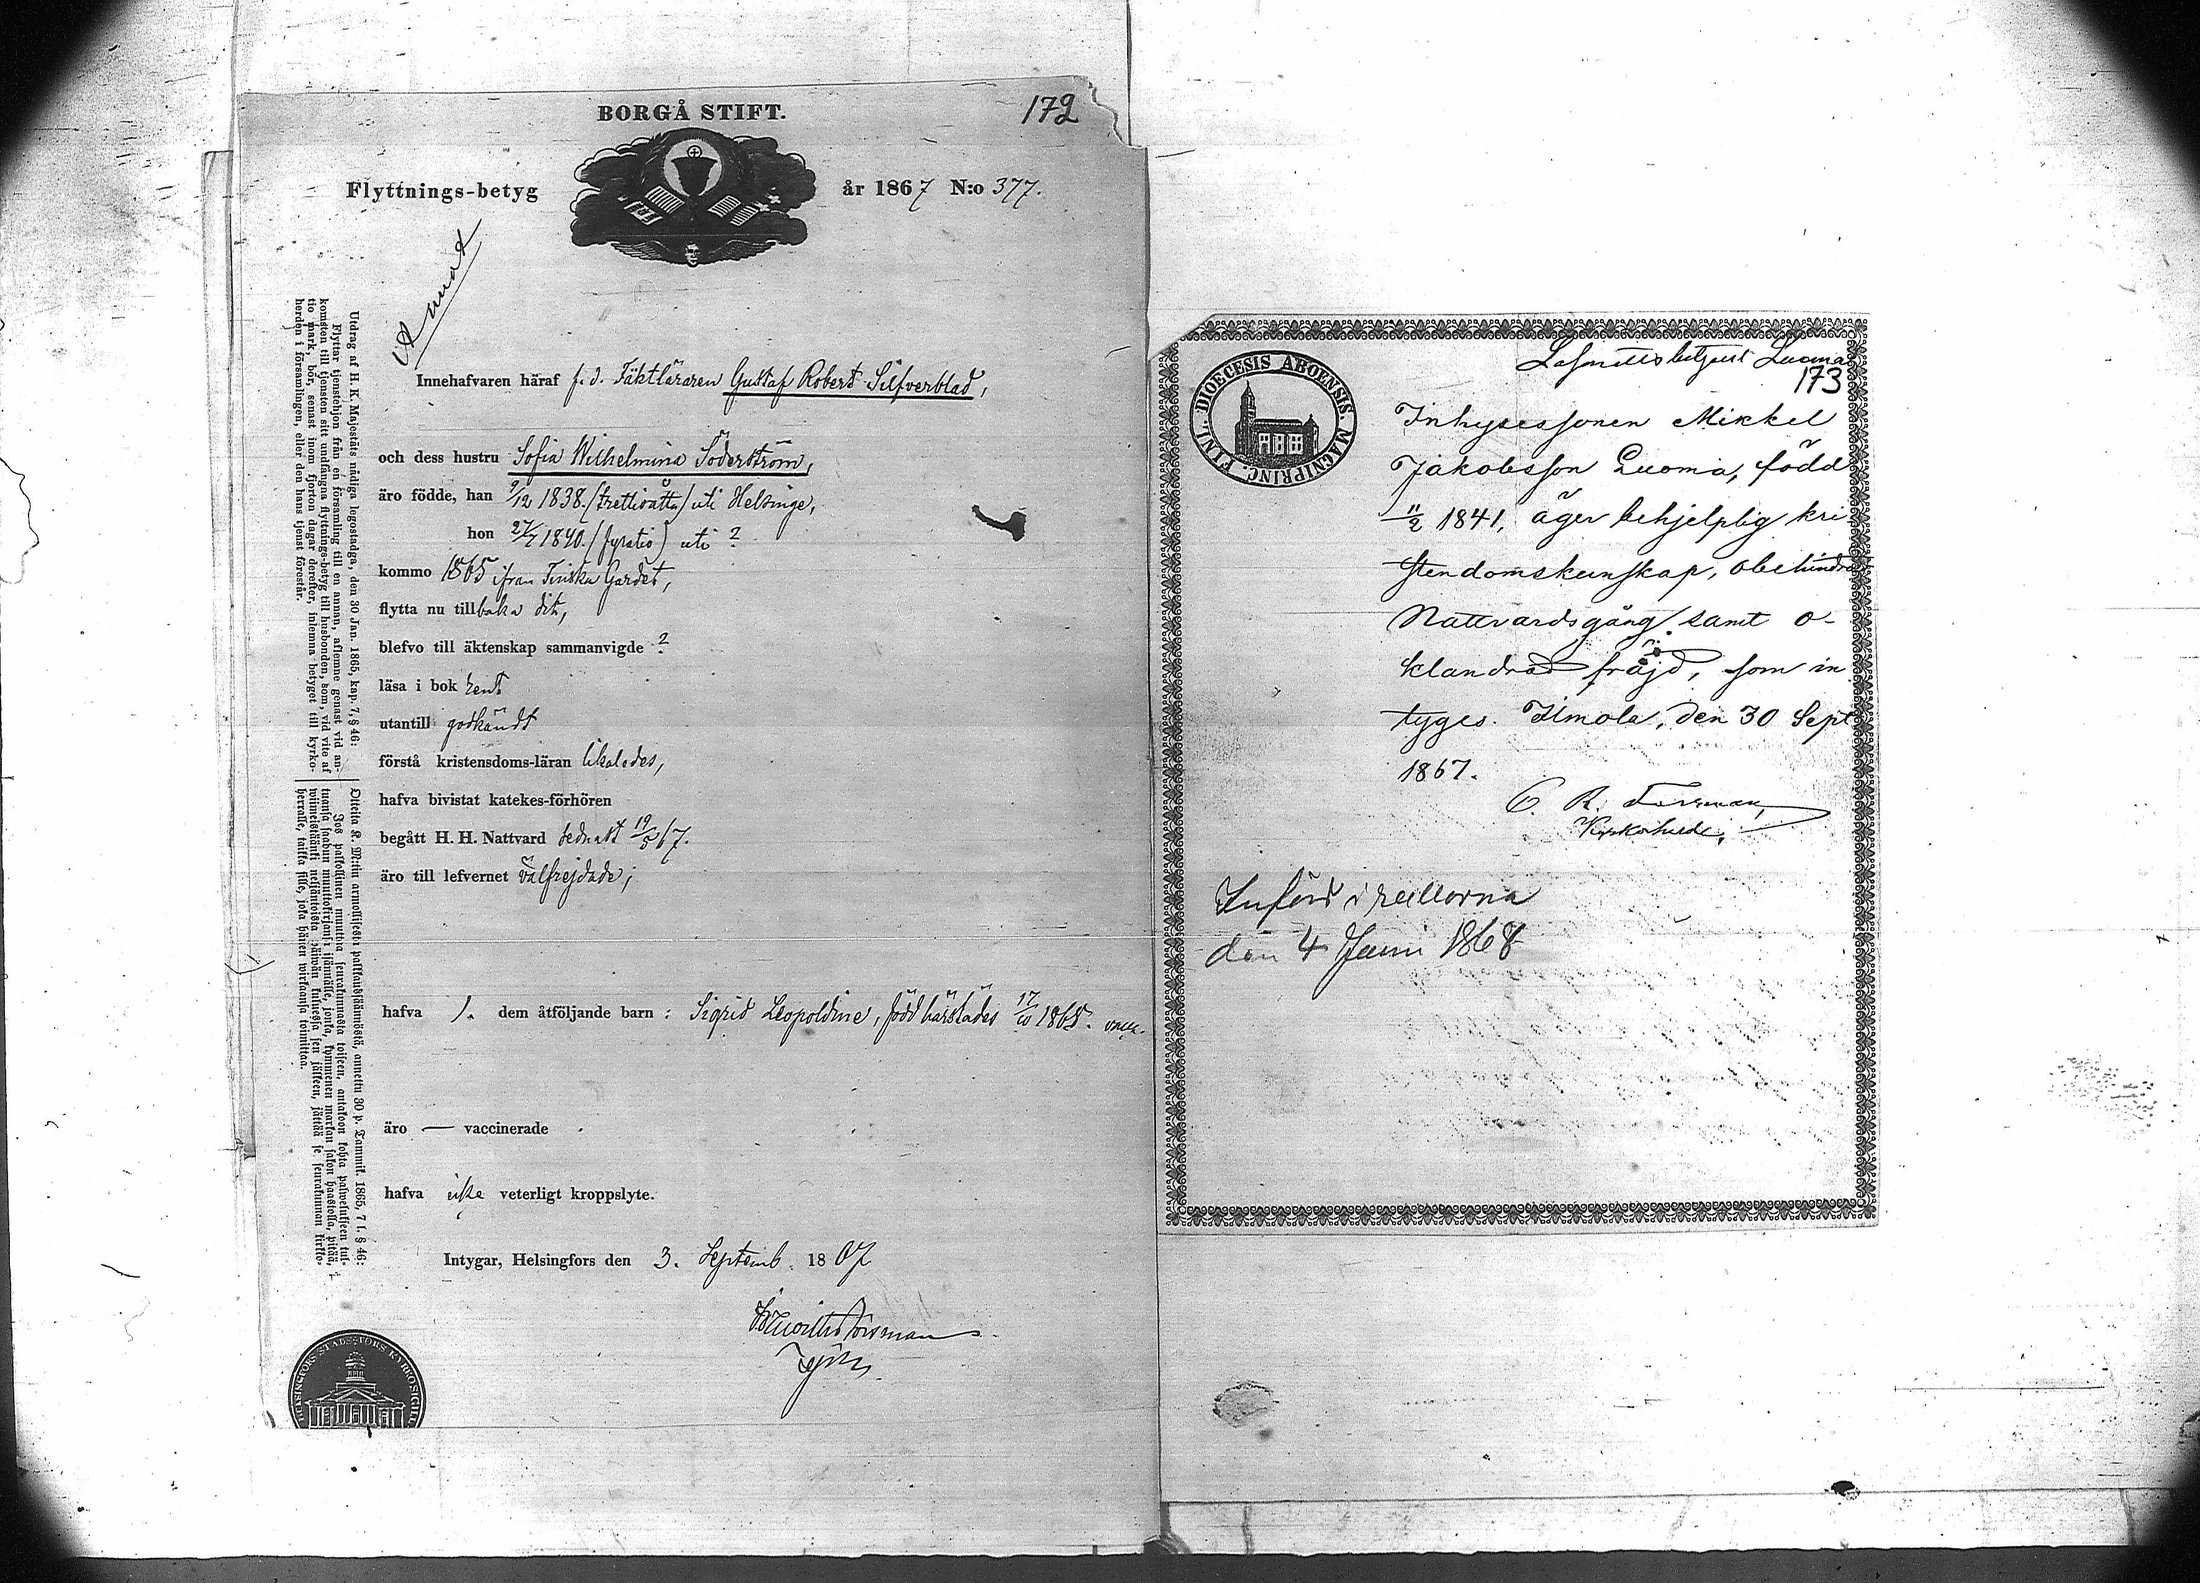 BORGÅ STIFT.
172
Flyttnings-betyg
år 1867 N:o 377.
Innehafvaren häraf f. d. Täktläraren Gustaf Robert Silfverblad,
och dess hustru Sofia Wilhelmina Söderström,
äro födde, han 9/12 1838. (trettioåtta) uti Helsinge,
hon 27/7 1840. (fyratio) uti ?
kommo 1865 ifrån Finska Gardet,
flytta nu tillbaka dit,
blefvo till äktenskap sammanvigde ?
läsa i bok rent
utantill godkändt
förstå kristensdoms-läran likaledes,
hafva bivistat katekes-förhören
begått H. H. Nattvard sednast 19/5 67.
äro till lefvernet välfrejdade;
hafva 1. dem åtföljande barn: Sigrid Leopoldine, född härstädes 17/10 1865.
äro — vaccinerade
hafva icke veterligt kroppslyte.
Intygar, Helsingfors den 3. Septemb. 1867
Utdrag af H. K. Majestäts nådiga legostadga, den 30 Jan. 1865, kap. 7, § 46:
Flyttar tjenstehjon från en församling till en annan, aflemne genast vid an-
komsten till tjensten sitt undfångna flyttnings-betyg till husbonden, som, vid vite af
tio mark, bör, senast inom fjorton dagar derefter, inlemna betyget till kyrko-
herden i församlingen, eller den hans tjenst förestår.
Otteita K. M:tin armollisesta palkkaussäännöstä, annettu 30 p. Tammik. 1865, 7 l. § 46:
Jos palkollinen muuttaa seurakunnasta toiseen, antakoon kohta palwelukseen tul-
tuansa saadun muuttokirjansa isännälle, jonka, kymmenen markan sakon haastolla, pitää,
wiimeistäänki neljäntoista päiwän kuluessa sen jälkeen, jättää se seurakunnan kirkko-
herralle, taikka sille, joka hänen wirkaansa toimittaa.
HELSINGFORS STADS-FÖRS KYRKOSIGILL
DIOECESIS ABOENSIS. MAGNIPRINC. FINL.
Luoma
173
Inhysessonen Mikkel
Jakobsson Luoma, född
11/2 1841, äger behjelplig kri
stendomskunskap, obehindrad
Nattvardsgång samt o-
klandrad fräjd, som in
tyges. Ilmola, den 30 Sept
1867.
C. R. Forsman,
Kyrkoherde,
Införd i rullorna
den 4 Juni 1868